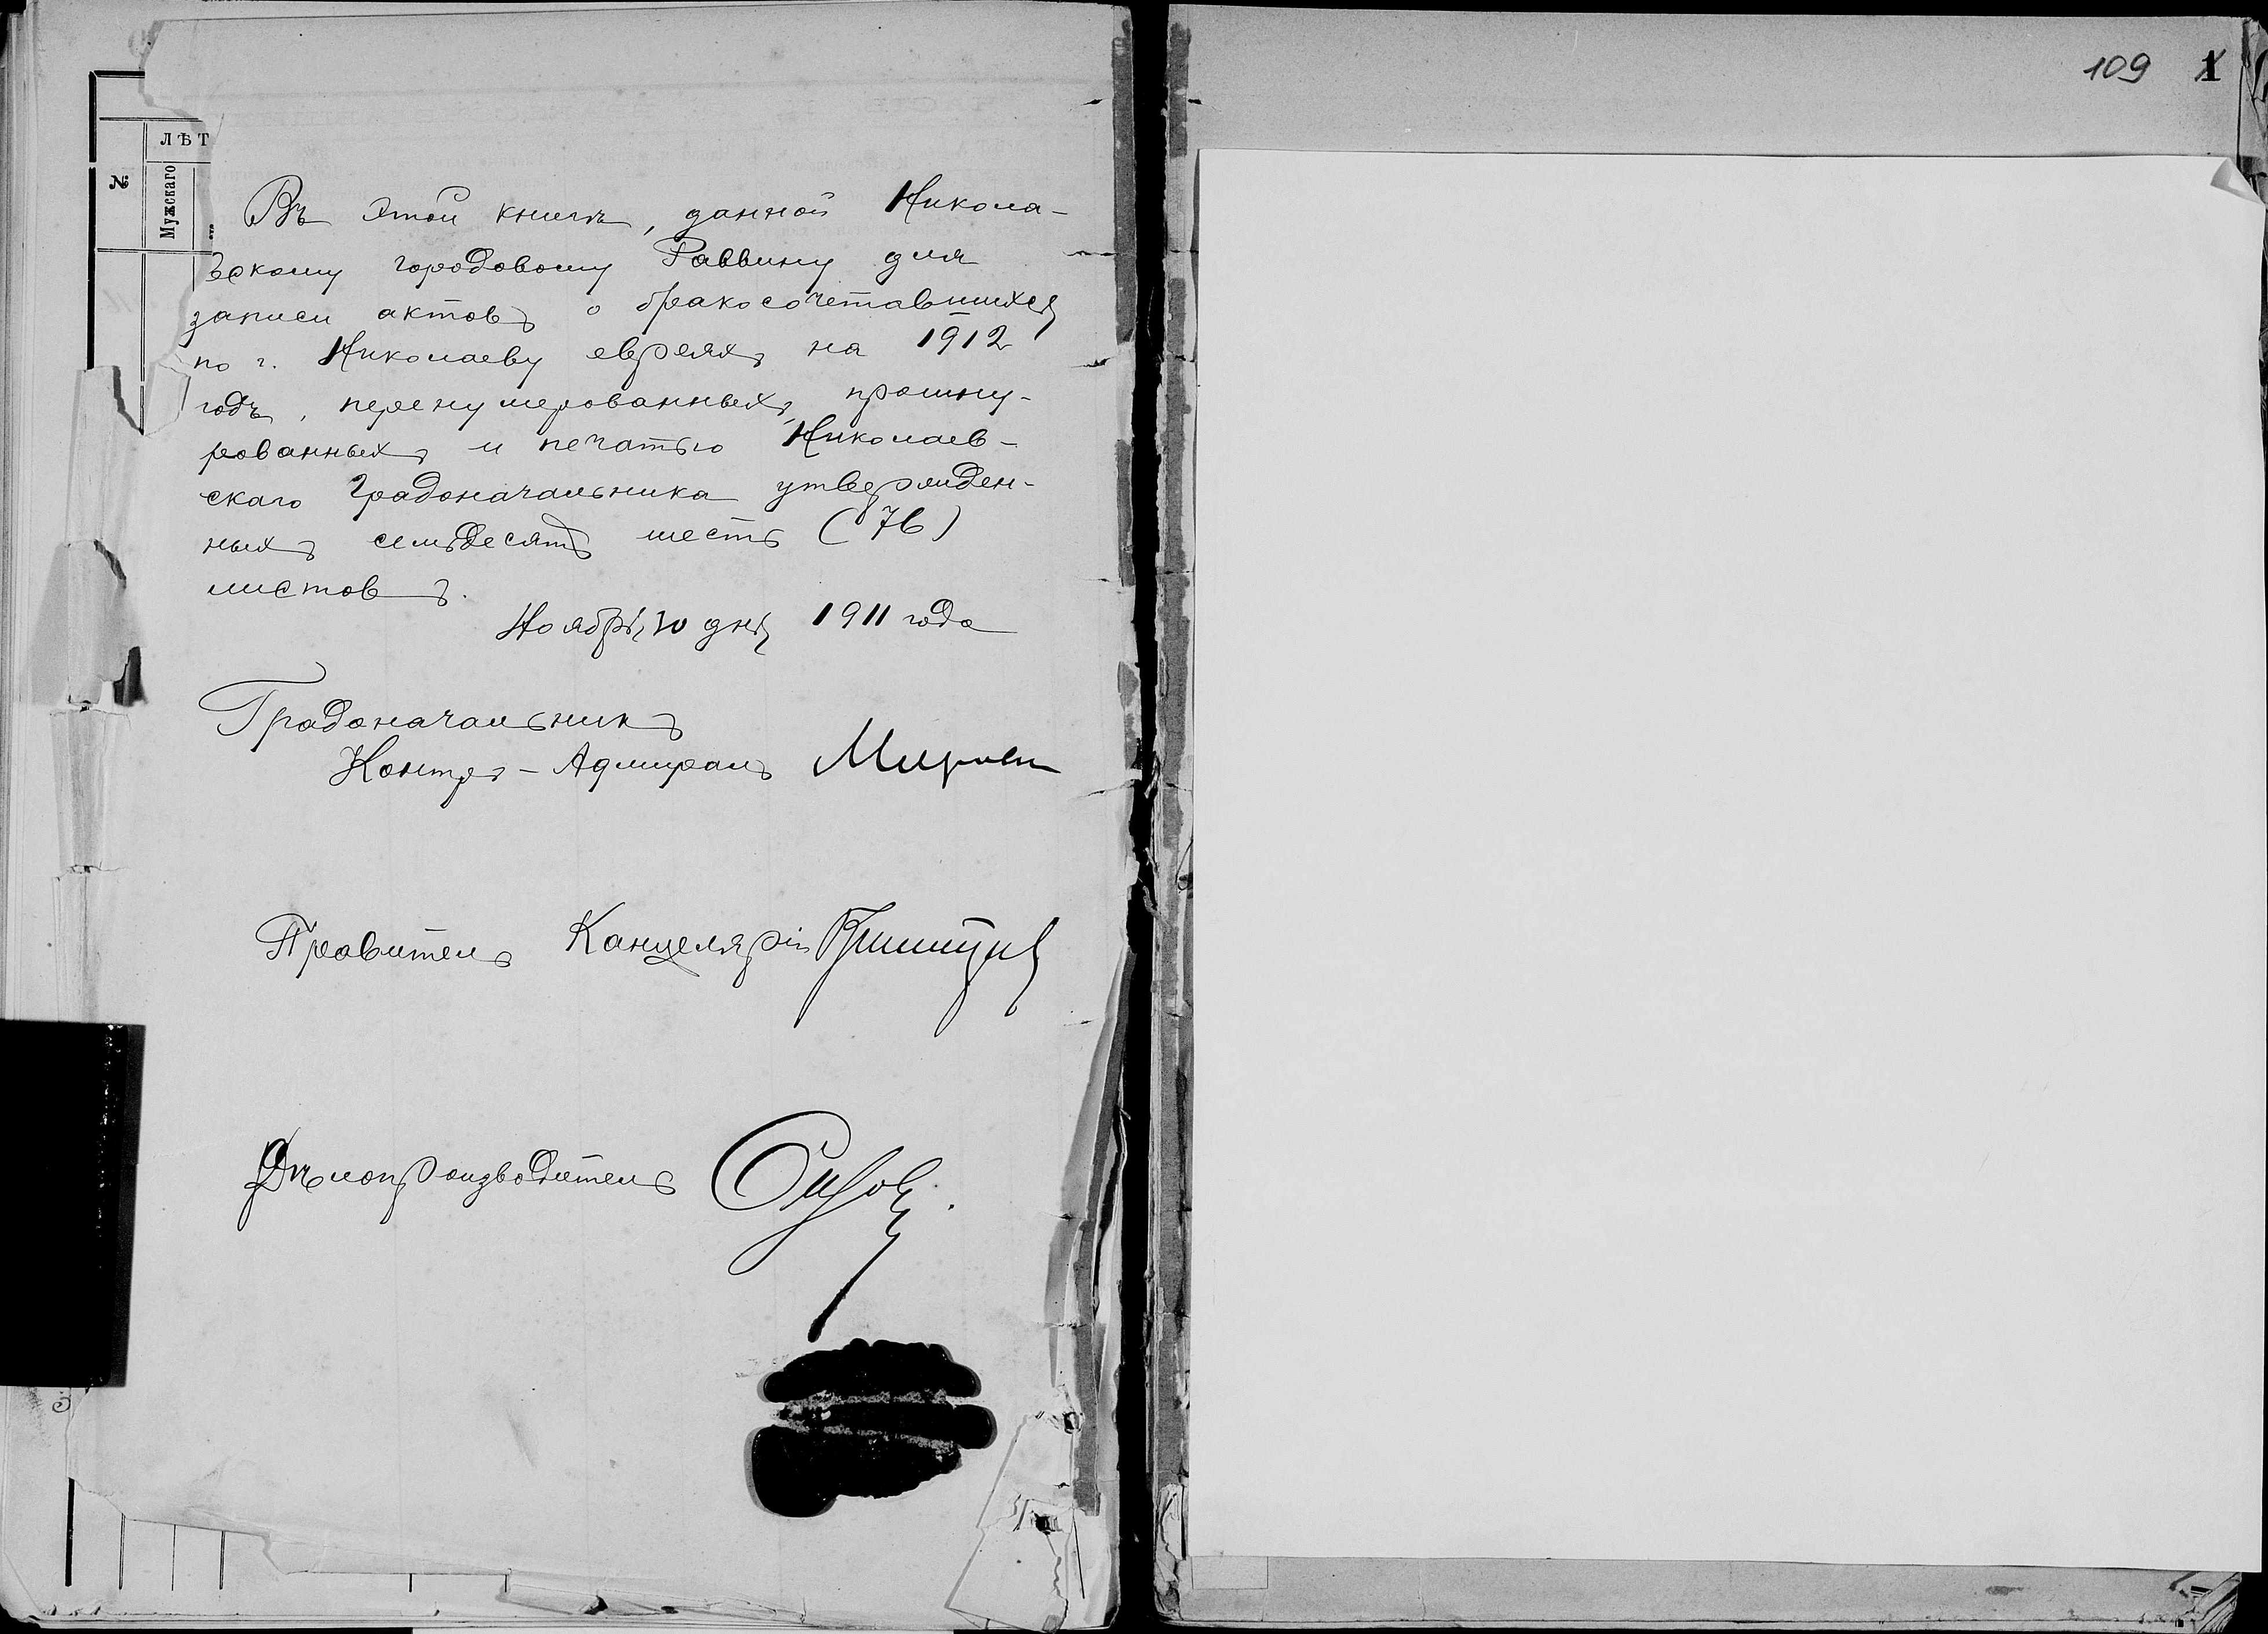 109 1
№
ЛѢТ
Мужскаго
Въ этой книгѣ, данной Никола-
вскому городовому Раввину для
записи актовъ о бракосочетавшихся
по г. Николаеву евреяхъ на 1912
годъ, перенумерованныхъ, прошну-
рованныхъ и печатью Николаев-
скаго Градоначальника утвержден-
ныхъ семьдесятъ шесть (76)
листовъ.
Ноября 10 дня 1911 года
Градоначальникъ
Контръ-Адмиралъ
Правитель Канцеляріи
Дѣлопроизводитель